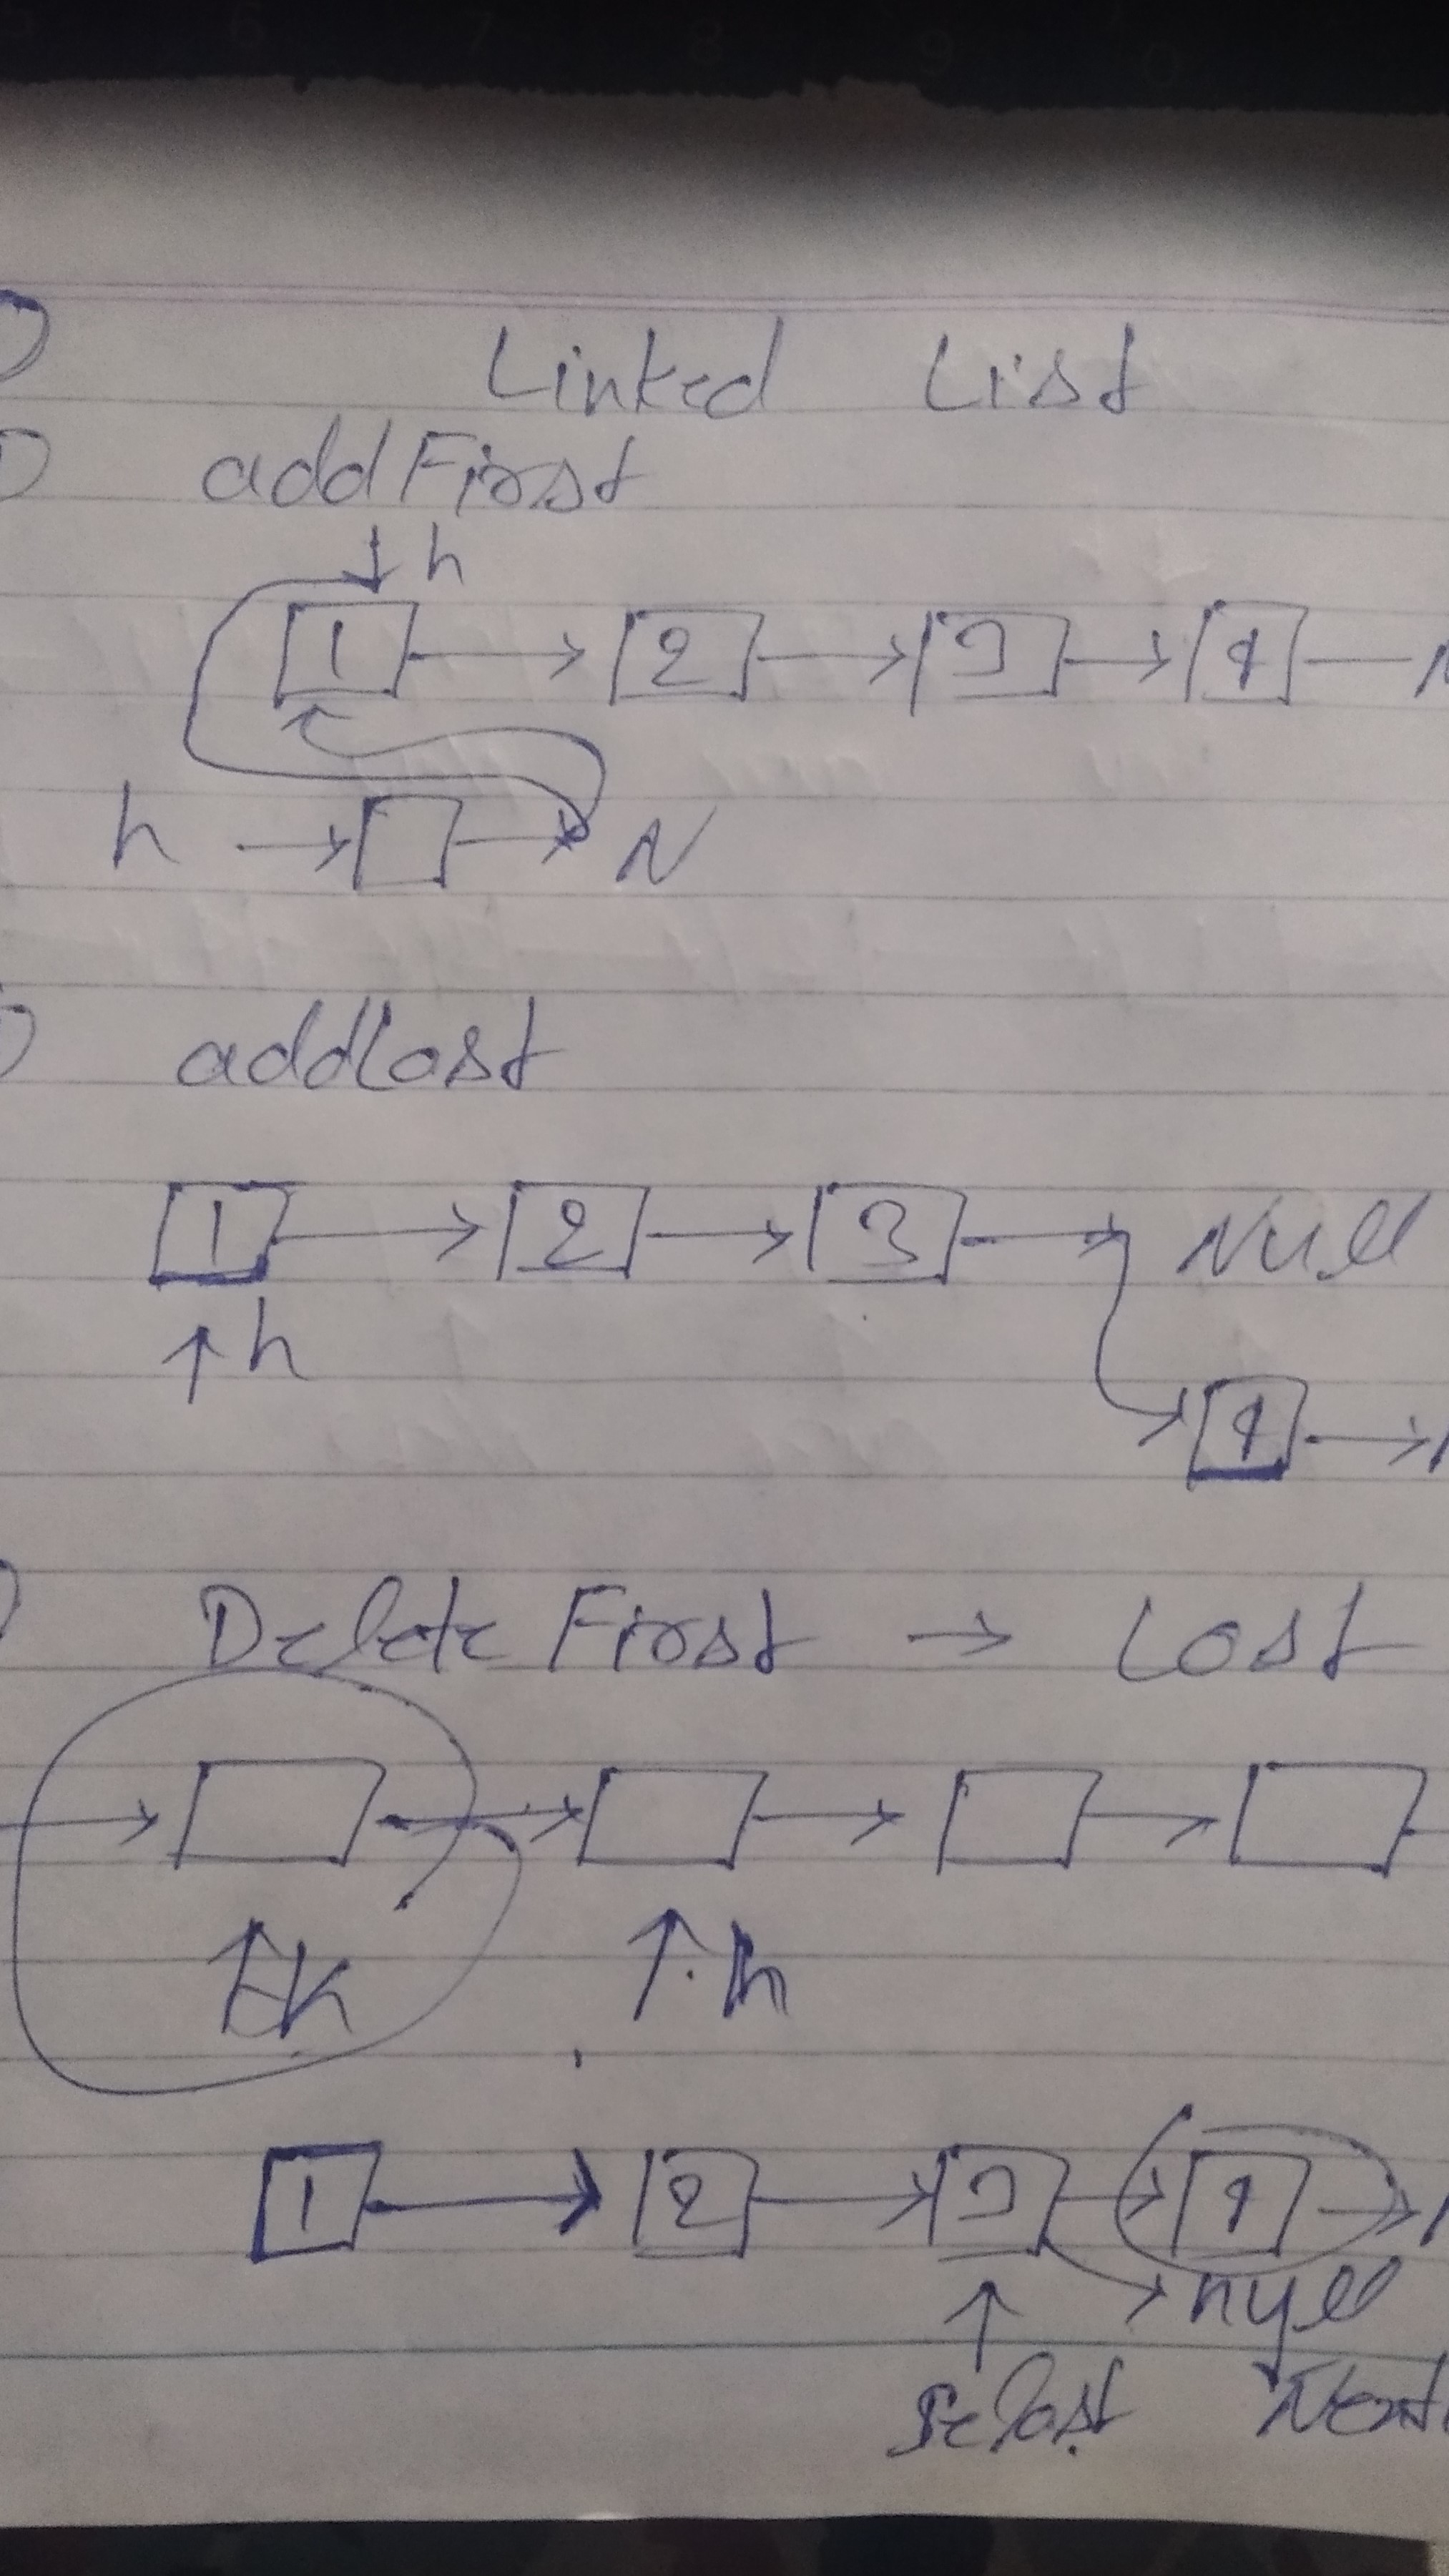 Linked List
addFirst
h
1 2 3 4
h N
addLast
1 2 3 Null
h
4
Delete First → Last
h h
1 2 3 4
null
Selast Next